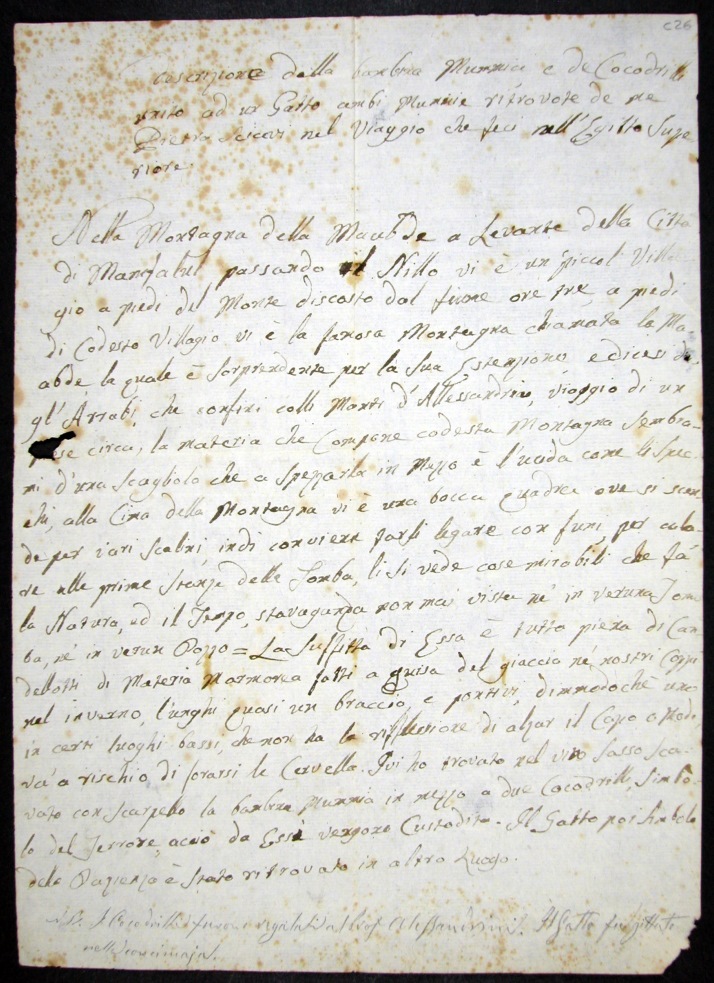 C26
Descrizione della bambina Mummia e de Cocodrilli
unito ad un Gatto ambi Mummie ritrovate da me
nel Viaggio che feci nell'Egitto Supe
riore.
Nella Montagna della Maabde a Levante della Citta
di Manfalut passando il Nillo vi è un piccol Villa
gio a piedi del Monte discosto dal fiume ore tre, a piedi
di Codesto Villagio vi e la famosa Montagna chiamata la Ma-
abde la quale è sorprendente per la sua Estenzione e dicesi da
gl'Arrabi, che confini colli Monti d'Allessandria, viaggio di un
mese circa, la materia che Compone codesta Montagna sembra-
mi d'una Scagliola che a spezzarla in Mezzo è lucida come li Spec-
chi, alla Cima della Montagna vi è una bocca quadra ove si scen
de per varj Scalini, indi convien farsi legare con funi per cala-
re alle prime Stanze della Tomba, li si vede cose mirabili che fà
la Natura, ed il Tempo, stavaganza non mai vista ne' in veruna Tom
ba, ne' in verun Pozzo = La Suffitta di Essa è tutta piena di Can-
dellotti di Materia Marmorea fatti a guisa del giaccio ne' nostri Coppi
nel inverno, lunghi quasi un braccio, e pontivi, dimmodochè uno
in certi luoghi bassi, che non ha la riflessione di alzar il Capo
và a rischio di forarsi le Cervella. Ivi ho trovato nel vivo Sasso sca-
vato con scarpello la bambina Mummia in mezzo a due Cocodrilli, Simbo-
lo del Terrore, acciò da Essi vengono Custodita. Il Gatto poi Simbolo
della Pazienza è stato ritrovato in altro Luogo.
I Cocodrilli furono regalati al Prof. Alessandrini. Il Gatto fu gittato